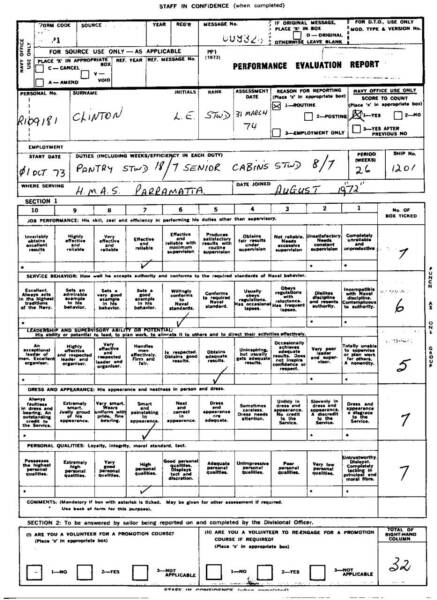 STAFF IN CONFIDENCE (when completed)
NAVY OFFICE USE ONLY
FORM CODE
SOURCE
YEAR
REG'R
MESSAGE No.
IF ORIGINAL MESSAGE, PLACE 'X' IN BOX
O — ORIGINAL
OTHERWISE LEAVE BLANK
F.O.T.O. USE ONLY
MOD. TYPE & VERSION No.
FOR SOURCE USE ONLY — AS APPLICABLE
PLACE 'X' IN APPROPRIATE BOX
REF. YEAR
REF. MESSAGE No.
C — CANCEL
V — VOID
A — AMEND
PF1
(1973)
PERFORMANCE EVALUATION REPORT
PERSONAL No.
SURNAME
INITIALS
RANK
ASSESSMENT DATE
REASON FOR REPORTING
(Place 'x' in appropriate box)
NAVY OFFICE USE ONLY
SCORE TO COUNT
(Place 'x' in appropriate box)
R109181
CLINTON
L.E.
STWD
31 MARCH 74
1—ROUTINE
2—POSTING
3—EMPLOYMENT ONLY
1—YES
2—NO
3—YES AFTER PREVIOUS NO
EMPLOYMENT
START DATE
DUTIES (INCLUDING WEEKS/EFFICIENCY IN EACH DUTY)
PERIOD (WEEKS)
SHIP No.
01 OCT 73
PANTRY STWD 18/7 SENIOR CABINS STWD 8/7
26
1201
WHERE SERVING
H.M.A.S. PARRAMATTA
DATE JOINED
AUGUST "72"
SECTION 1
10 9 8 7 6 5 4 3 2 1
No. OF BOX TICKED
JOB PERFORMANCE: His skill, zeal and efficiency in performing his duties other than supervisory.
Invariably obtains excellent results
Highly effective and reliable
Very effective and reliable
Effective and reliable
Effective and reliable with minimum supervision
Produces satisfactory results with routine supervision
Obtains fair results under supervision
Not reliable. Needs excessive supervision
Unsatisfactory. Needs constant supervision
Completely unreliable and unproductive
7
SERVICE BEHAVIOR: How well he accepts authority and conforms to the required standards of Naval behavior.
Excellent. Always acts in the highest traditions of the Navy.
Sets an admirable example in his behavior.
Sets a very good example in his behavior.
Sets a good example in his behavior.
Willingly conforms to standards.
Conforms to required Naval standard.
Usually obeys regulations. Has occasional lapses.
Obeys regulations with reluctance. Has frequent lapses.
Dislikes discipline and resents authority.
Incompatible with Naval discipline. Contemptuous to authority.
6
LEADERSHIP AND SUPERVISORY ABILITY OR POTENTIAL:
His ability or potential to lead, to plan work, to allocate it to others and to direct their activities effectively.
An exceptional leader of men. Excellent organiser.
Highly effective and respected leader and organiser.
Very effective and respected leader and organiser.
Handles men effectively. Firm and fair.
Is respected. Obtains good results.
Obtains adequate results.
Uninspiring, but usually gets adequate results.
Occasionally achieves adequate results. Does not inspire confidence or respect.
Very poor leader and supervisor.
Totally unable to supervise or plan work for others. A nonentity.
5
DRESS AND APPEARANCE: His appearance and neatness in person and dress.
Always faultless in dress and bearing. An outstanding credit to the Service.
Extremely smart. Justly proud of his appearance.
Very smart. Wears uniform with pride, fine bearing.
Smart and painstaking in appearance.
Neat and correct in appearance.
Dress and appearance are adequate.
Sometimes careless. Dress needs attention.
Untidy in dress and appearance. No credit to the Service.
Slovenly in dress and appearance. A discredit to the Service.
Dress and appearance a disgrace to the Service.
7
PERSONAL QUALITIES: Loyalty, integrity, moral standard, tact.
Possesses the highest personal qualities.
Extremely high personal qualities.
Very good personal qualities.
High personal qualities.
Good personal qualities. Displays tact and discretion.
Adequate personal qualities.
Unimpressive personal qualities.
Poor personal qualities.
Very low personal qualities.
Untrustworthy. Disloyal. Completely lacking in principal and moral fibre.
7
PUNCH AS ONE GROUP
COMMENTS: (Mandatory if box with asterisk is ticked. May be given for other assessment if required.
* Use back of form for this purpose).
SECTION 2: To be answered by sailor being reported on and completed by the Divisional Officer.
(i) ARE YOU A VOLUNTEER FOR A PROMOTION COURSE?
(Place 'x' in appropriate box)
1—NO
2—YES
3—NOT APPLICABLE
(ii) ARE YOU A VOLUNTEER TO RE-ENGAGE FOR A PROMOTION COURSE IF REQUIRED?
(Place 'x' in appropriate box)
1—NO
2—YES
3—NOT APPLICABLE
TOTAL OF RIGHT-HAND COLUMN
32
STAFF IN CONFIDENCE (when completed)